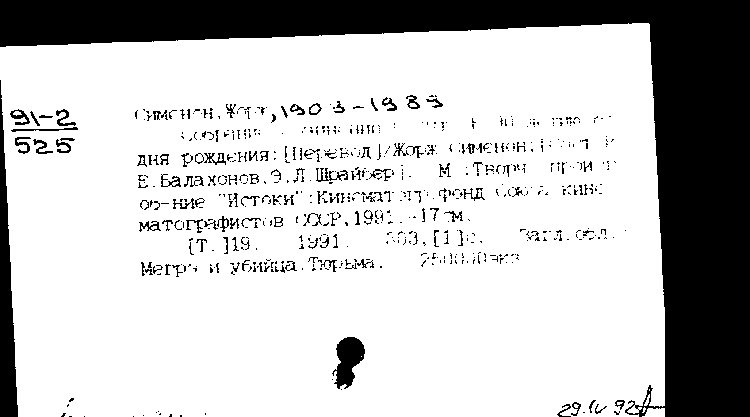 91-2
525
Сименон, Жорж, 1903-1989
Собрание
дня рождения: [Перевод]/Жорж Сименон;
Е.Балахонов, Э.Л.Шрайбер]. М.:Творч. произв.
об-ние "Истоки":Кинематогр.фонд Союза кине
матографистов СССР,1991.-17см.
[Т.]19. 1991. 303,[1]с. Загл.обл.:
Мегрэ и убийца.Тюрьма. 250000экз
29.IV 92